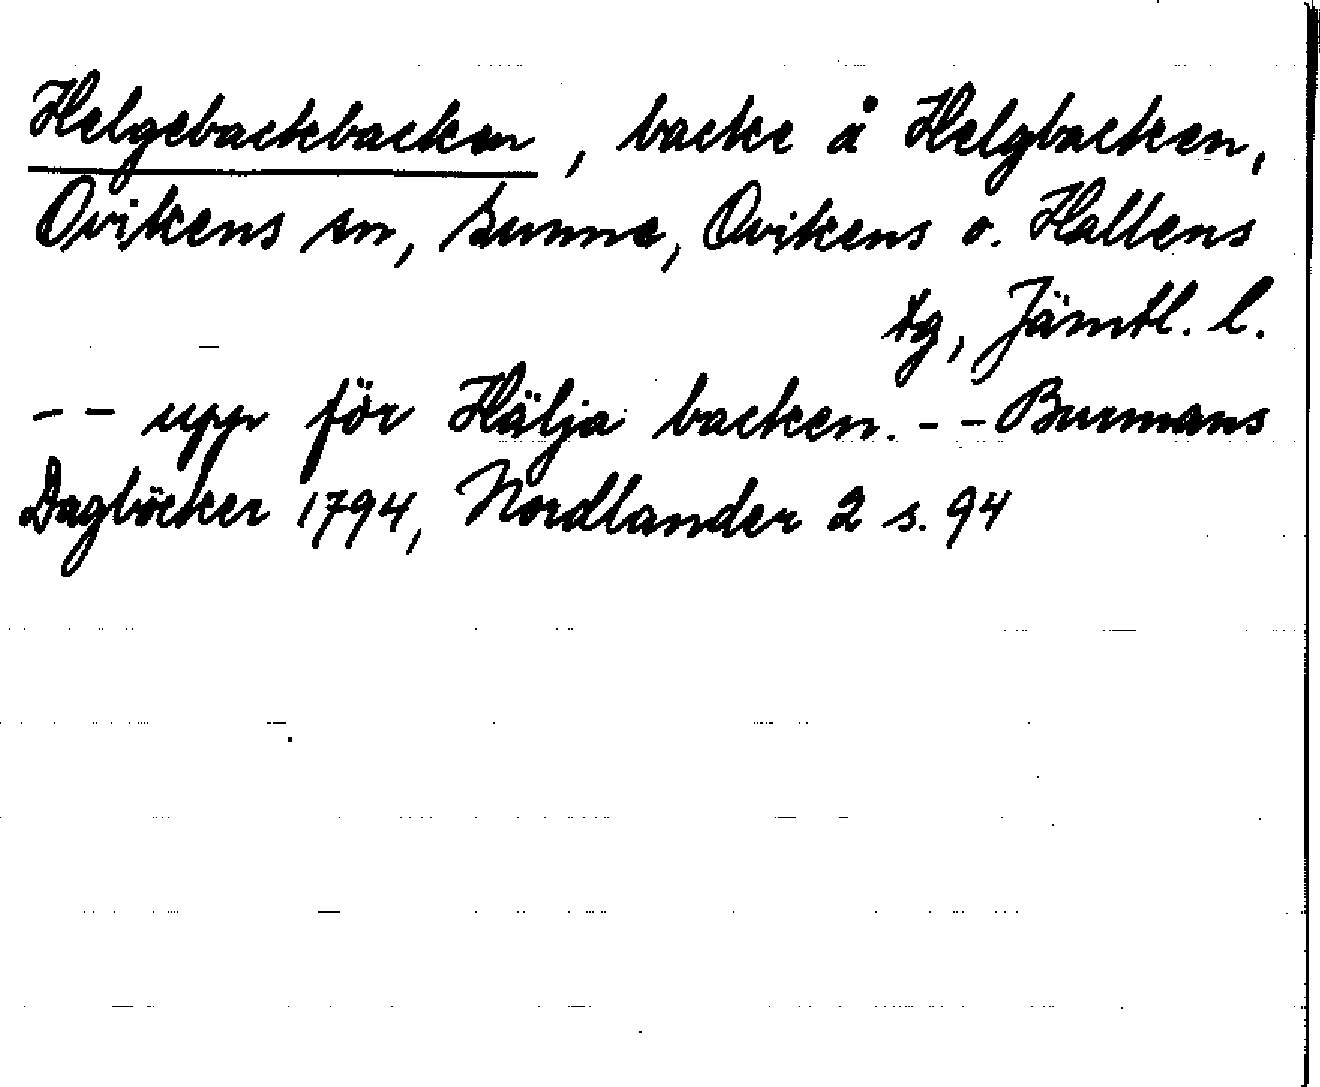 Helgebackebacken, backe å Helgbacken,
Ovikens sn, Sunne, Ovikens o. Hallens
tg, Jämtl. l.
-- upp för Hälja backen. -- Burmans
Dagböcker 1794, Nordlander 2 s. 94